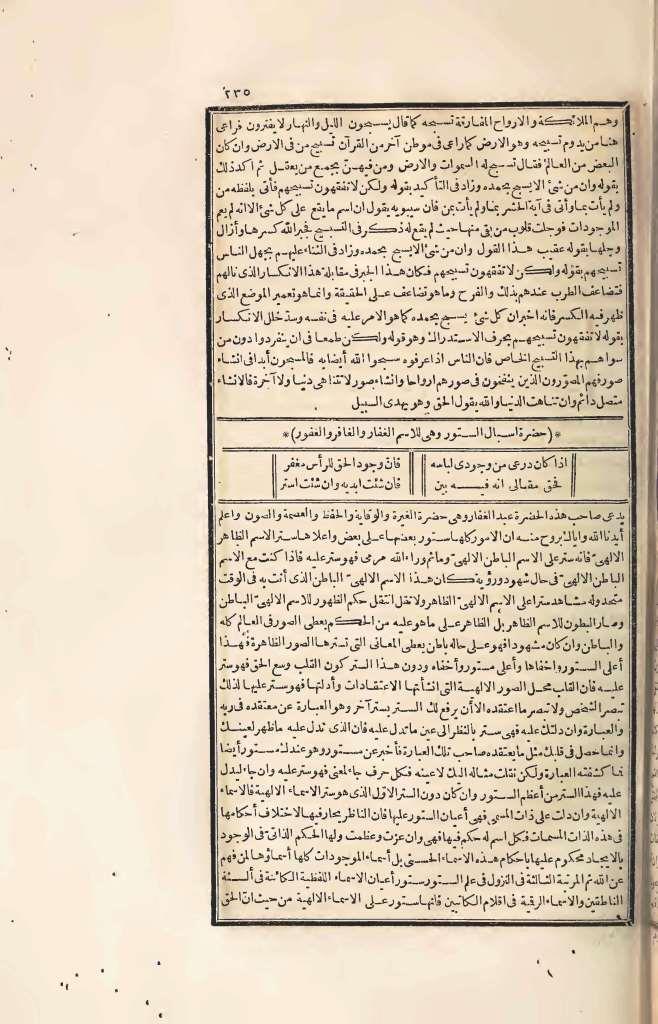 ٢٣٥
وهم الملائكة والارواح المفارقة تسبيحه كما قال يسبحون الليل والنهار لا يفترون فراعى
هنا من يدوم تسبيحه وهو الارض كما راعى فى موطن آخر من القرآن تسبيح من فى الارض وان كان
البعض من العالم فقال تسبح له السموات والارض ومن فيهنّ بجميع من يعقل ثم اكد ذلك
بقوله وان من شئ الا يسبح بحمده وزاد فى التأكيد بقوله ولكن لا تفقهون تسبيحهم فأتى بلفظة من
ولم يأت بما وأتى فى آية الحشر بما ولم يأت بمن فان سيبويه يقول ان اسم ما يقع على كل شئ الا انه لم يعم
الموجودات فوجلت قلوب من بقى منها حيث لم يقع له ذكر فى التسبيح فجبر الله كسرها وأزال
وجلها بقوله عقيب هذا القول وان من شئ الا يسبح بحمده وزاد فى الثناء عليهم بجهل الناس
تسبيحهم بقوله ولكن لا تفقهون تسبيحهم فكان هذا الجبر فى مقابلة هذا الانكسار الذى نالهم
فتضاعف الطرب عندهم بذلك والفرح وما هو تضاعف على الحقيقة وانما هو تعمير الموضع الذى
ظهر فيه الكسر فانه اخبر ان كل شئ يسبح بحمده كما هو الامر عليه فى نفسه وسدّ خلل الانكسار
بقوله لا تفقهون تسبيحهم بحرف الاستدراك وهو قوله ولكن طمعا فى ان ينفردوا دون من
سواهم بهذا التسبيح الخاص فان الناس اذا عرفوه سبحوا الله أيضا به فالمسبحون أبدا فى انشاء
صور فهم المصوّرون الذين ينفخون فى صورهم ارواحا وانشاء صور لا تتناهى دنيا ولا آخرة فالانشاء
متصل دائم وان تناهت الدنيا والله يقول الحق وهو يهدى السبيل
* (حضرة اسبال الستور وهى للاسم الغفار والغافر والغفور) *
اذا كان درعى من وجودى لباسه فان وجود الحق للرأس مغفر
فحق مقالى انه فيه بين فان شئت ابديه وان شئت استر
يدعى صاحب هذه الحضرة عبد الغفار وهى حضرة الغيرة والوقاية والحفظ والعصمة والصون واعلم
أيدنا الله واياك بروح منه ان الامور كلها ستور بعضها على بعض واعلاها سترا الاسم الظاهر
الالهىّ فانه ستر على الاسم الباطن الالهىّ وما ثم وراء الله مرمى فهو ستر عليه فاذا كنت مع الاسم
الباطن الالهىّ فى حال شهود ورؤية كان هذا الاسم الالهىّ الباطن الذى أنت به فى الوقت
متحد وله مشاهد سترا على الاسم الالهىّ الظاهر ولا تقل انتقل حكم الظهور للاسم الالهىّ الباطن
وصار البطون للاسم الظاهر بل الظاهر على ما هو عليه من الحكم يعطى الصور فى العالم كله
والباطن وان كان مشهودا فهو على حاله باطن يعطى المعانى التى تسترها الصور الظاهرة فهذا
أعلى الستور واخفاها وأعلى مستور وأخفاه ودون هذا الستر كون القلب وسع الحق فهو ستر
عليه فان القلب محل الصور الالهية التى انشأتها الاعتقادات وأدلتها فهو ستر عليها لذلك
تبصر الشخص ولا تبصر ما اعتقده الا أن يرفع لك الستر بستر آخر وهو العبارة عن معتقده فى ربه
والعبارة وان دلتك عليه فهى ستر بالنظر الى عين ما تدل عليه فان الذى تدل عليه ما ظهر لعينك
وانما حصل فى قلبك مثل ما يعتقده صاحب تلك العبارة فأخبر عن مستور وهو عندك مستور أيضا
فما كشفته العبارة ولكن نقلت مثاله اليك لا عينه فكل حرف جاء لمعنى فهو ستر عليه وان جاء ليدل
عليه فهذا الستر من أعظم الستور وان كان دون الستر الاوّل الذى هو ستر الاسماء الالهية فالاسماء
الالهية وان دلت على ذات المسمى فهى أعيان الستور عليها فان الناظر يحار فيها لاختلاف أحكامها
فى هذه الذات المسمات فكل اسم له حكم فيها فهى وان عزت وعظمت ولها الحكم الذاتىّ فى الوجود
بالايجاد محكوم عليها باحكام هذه الاسماء الحسنى بل أسماء الموجودات كلها أسماؤها لمن فهم
عن الله ثم المرتبة الثالثة فى النزول فى علم الستور ستور أعيان الاسماء اللفظية الكائنة فى ألسنة
الناطقين والاسماء الرقمية فى اقلام الكاتبين فانها ستور على الاسماء الالهية من حيث انّ الحق